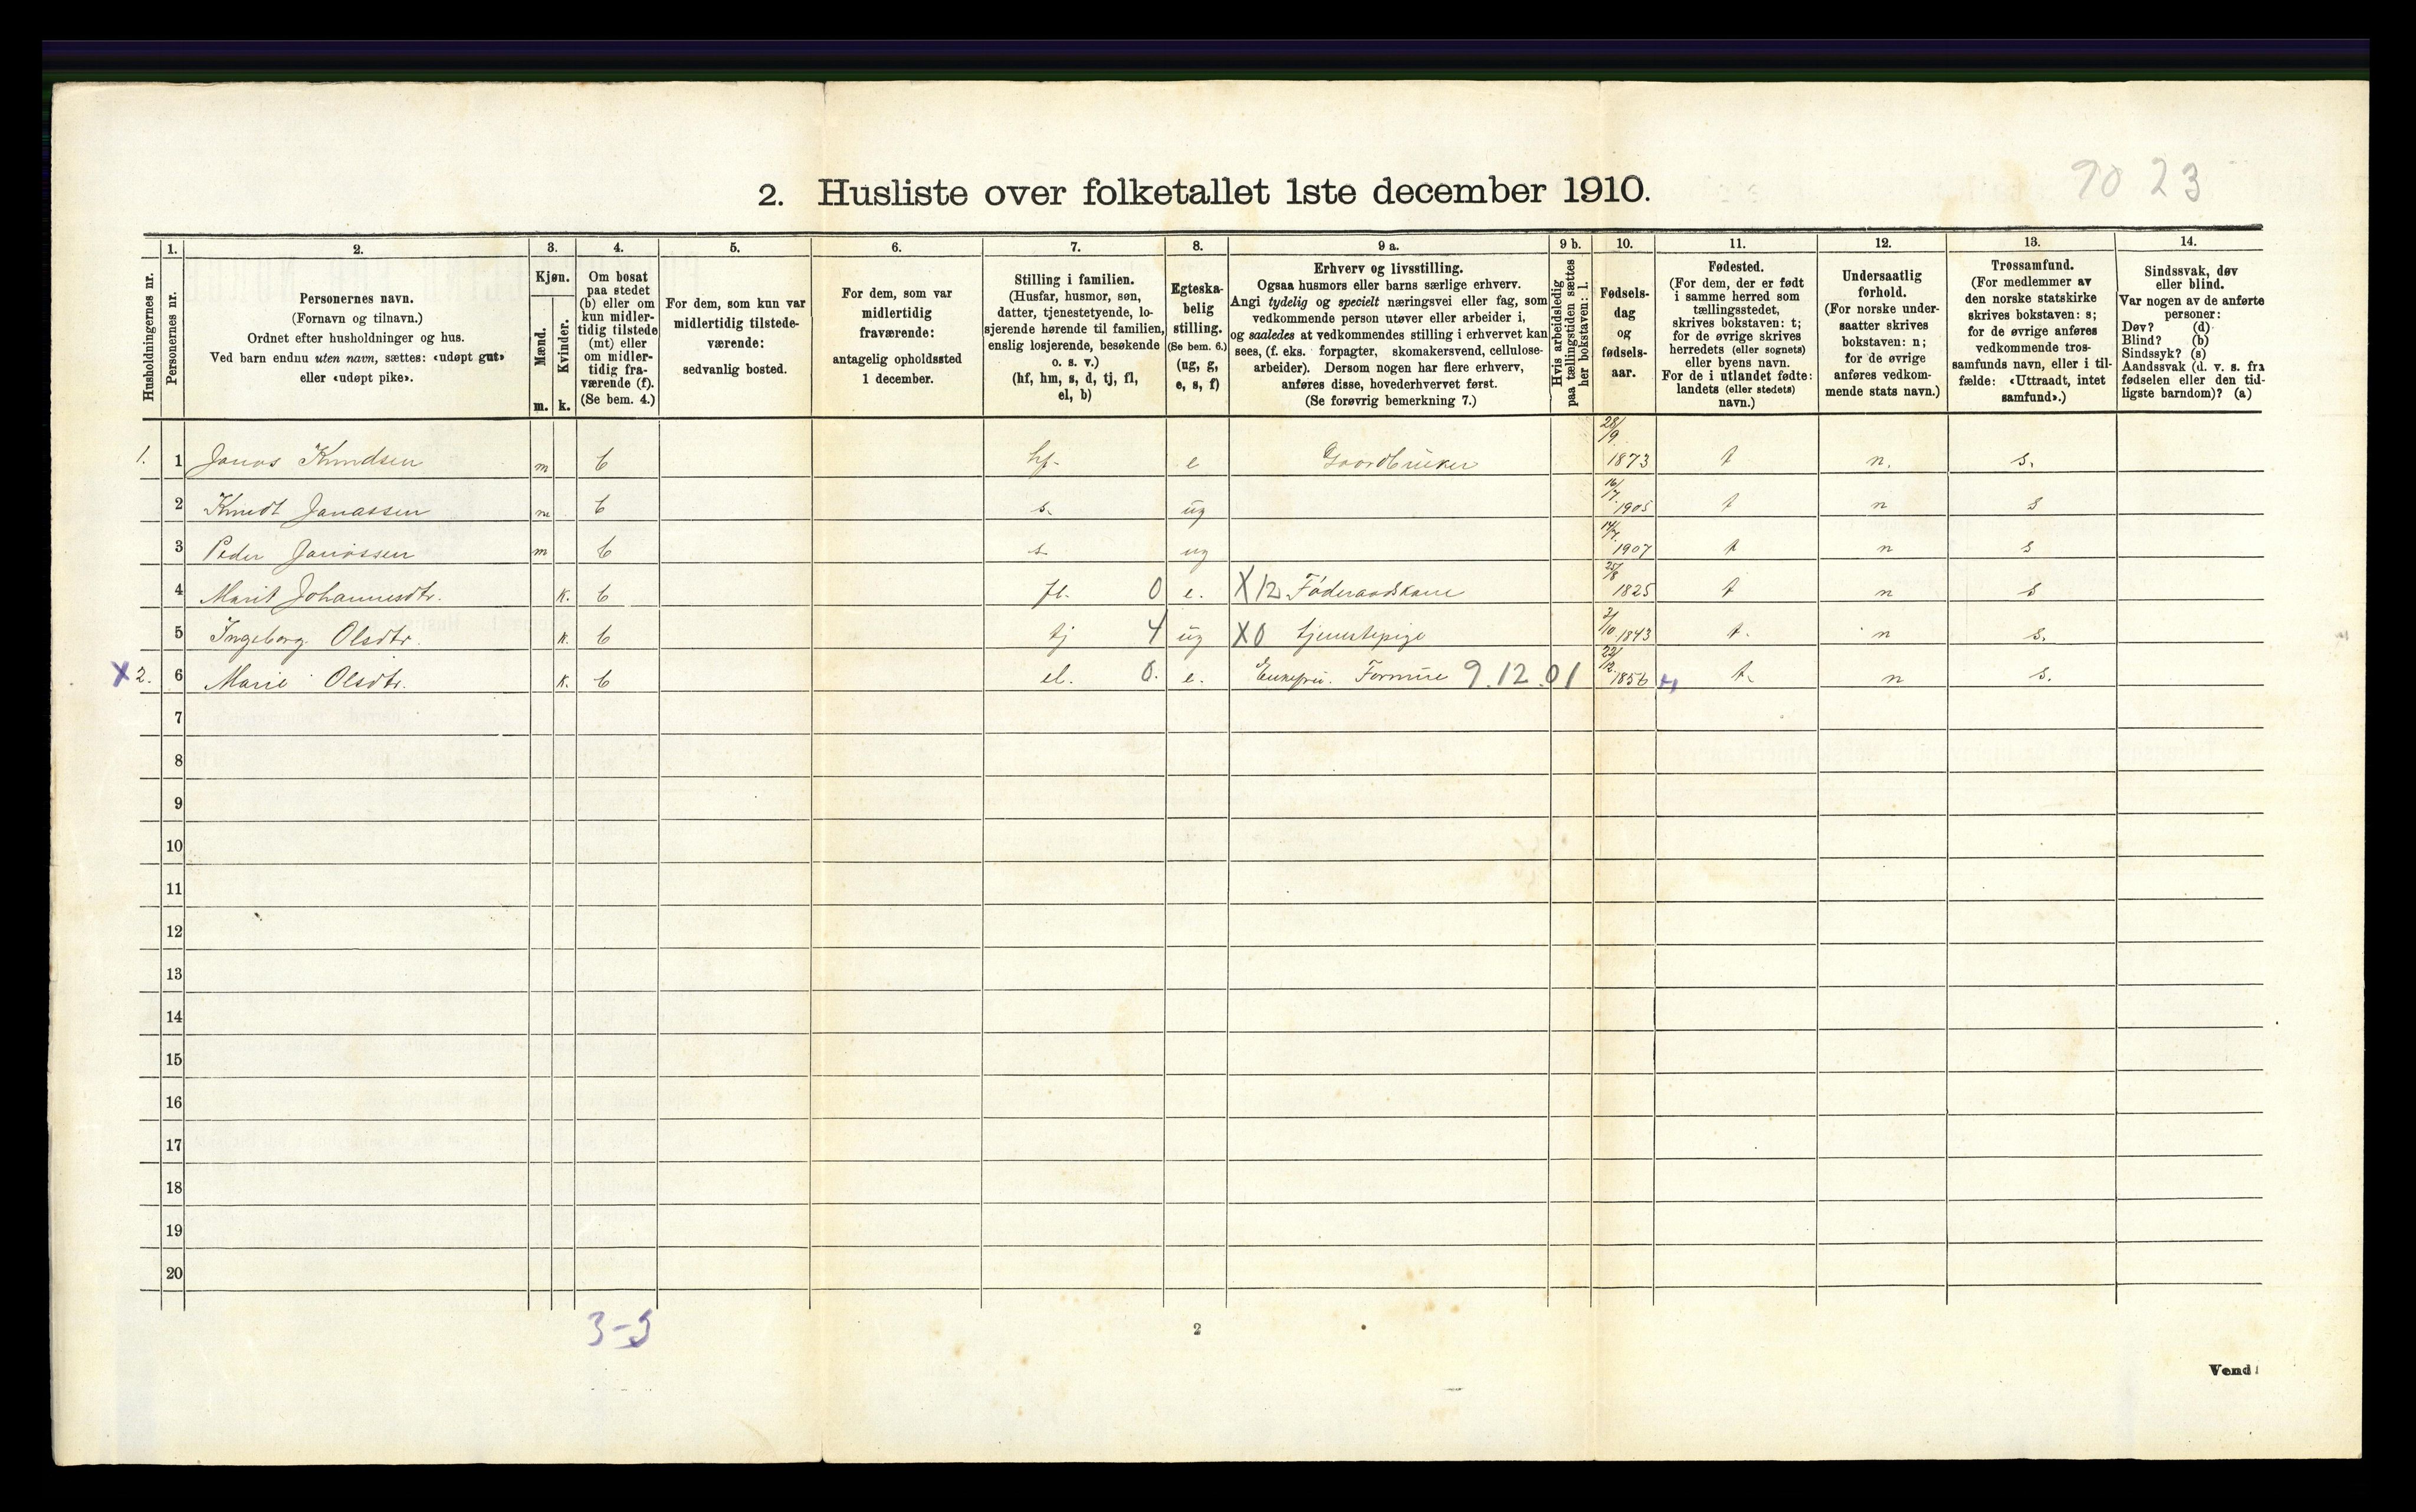 90 23
2. Husliste over folketallet 1ste december 1910.
Husholdningernes nr.
1.
Personernes nr.
2.
Personernes navn.
(Fornavn og tilnavn.)
Ordnet efter husholdninger og hus.
Ved barn endnu uten navn, sættes: «udøpt gut»
eller «udøpt pike».
3.
Kjøn.
Mænd.
Kvinder.
m. k.
4.
Om bosat
paa stedet
(b) eller om
kun midler-
tidig tilstede
(mt) eller
om midler-
tidig fra-
værende (f).
(Se bem. 4.)
5.
For dem, som kun var
midlertidig tilstede-
værende:
sedvanlig bosted.
6.
For dem, som var
midlertidig
fraværende:
antagelig opholdssted
1 december.
7.
Stilling i familien.
(Husfar, husmor, søn,
datter, tjenestetyende, lo-
sjerende hørende til familien,
enslig losjerende, besøkende
o. s. v.)
(hf, hm, s, d, tj, fl,
el, b)
8.
Egteska-
belig
stilling.
(Se bem. 6.)
(ug, g,
e, s, f)
9 a.
Erhverv og livsstilling.
Ogsaa husmors eller barns særlige erhverv.
Angi tydelig og specielt næringsvei eller fag, som
vedkommende person utøver eller arbeider i,
og saaledes at vedkommendes stilling i erhvervet kan
sees, (f. eks. forpagter, skomakersvend, cellulose-
arbeider). Dersom nogen har flere erhverv,
anføres disse, hovederhvervet først.
(Se forøvrig bemerkning 7.)
9 b.
Hvis arbeidsledig
paa tællingstiden sættes
her bokstaven: l.
10.
Fødsels-
dag
og
fødsels-
aar.
11.
Fødested.
(For dem, der er født
i samme herred som
tællingsstedet,
skrives bokstaven: t;
for de øvrige skrives
herredets (eller sognets)
eller byens navn.
For de i utlandet fødte:
landets (eller stedets)
navn.)
12.
Undersaatlig
forhold.
(For norske under-
saatter skrives
bokstaven: n;
for de øvrige
anføres vedkom-
mende stats navn.)
13.
Trossamfund.
(For medlemmer av
den norske statskirke
skrives bokstaven: s;
for de øvrige anføres
vedkommende tros-
samfunds navn, eller i til-
fælde: «Uttraadt, intet
samfund».)
14.
Sindssvak, døv
eller blind.
Var nogen av de anførte
personer:
Døv? (d)
Blind? (b)
Sindssyk? (s)
Aandssvak (d. v. s. fra
fødselen eller den tid-
ligste barndom)? (a)
1. 1 Jonas Knudsen m b hf. e Gaardbruker 28/9 1873 t n. s.
2 Knudt Janassen m b s. ug 16/7 1905 t n s
3 Peder Janassen m b s. ug 14/7 1907 t n s
4 Marit Johannesdtr. k. b fl. 0 e. X12 Føderaadskone 25/8 1825 t n s
5 Ingeborg Olsdtr. k. b tj 4 ug X0 tjenestepige 2/10 1843 t. n s.
X 2. 6 Marie Olsdtr. k. b el. 0. e. Enkefru. Formue 9.12.01 22/12 1856 t. n s.
7
8
9
10
11
12
13
14
15
16
17
18
19
20
3-3
2
Vend!